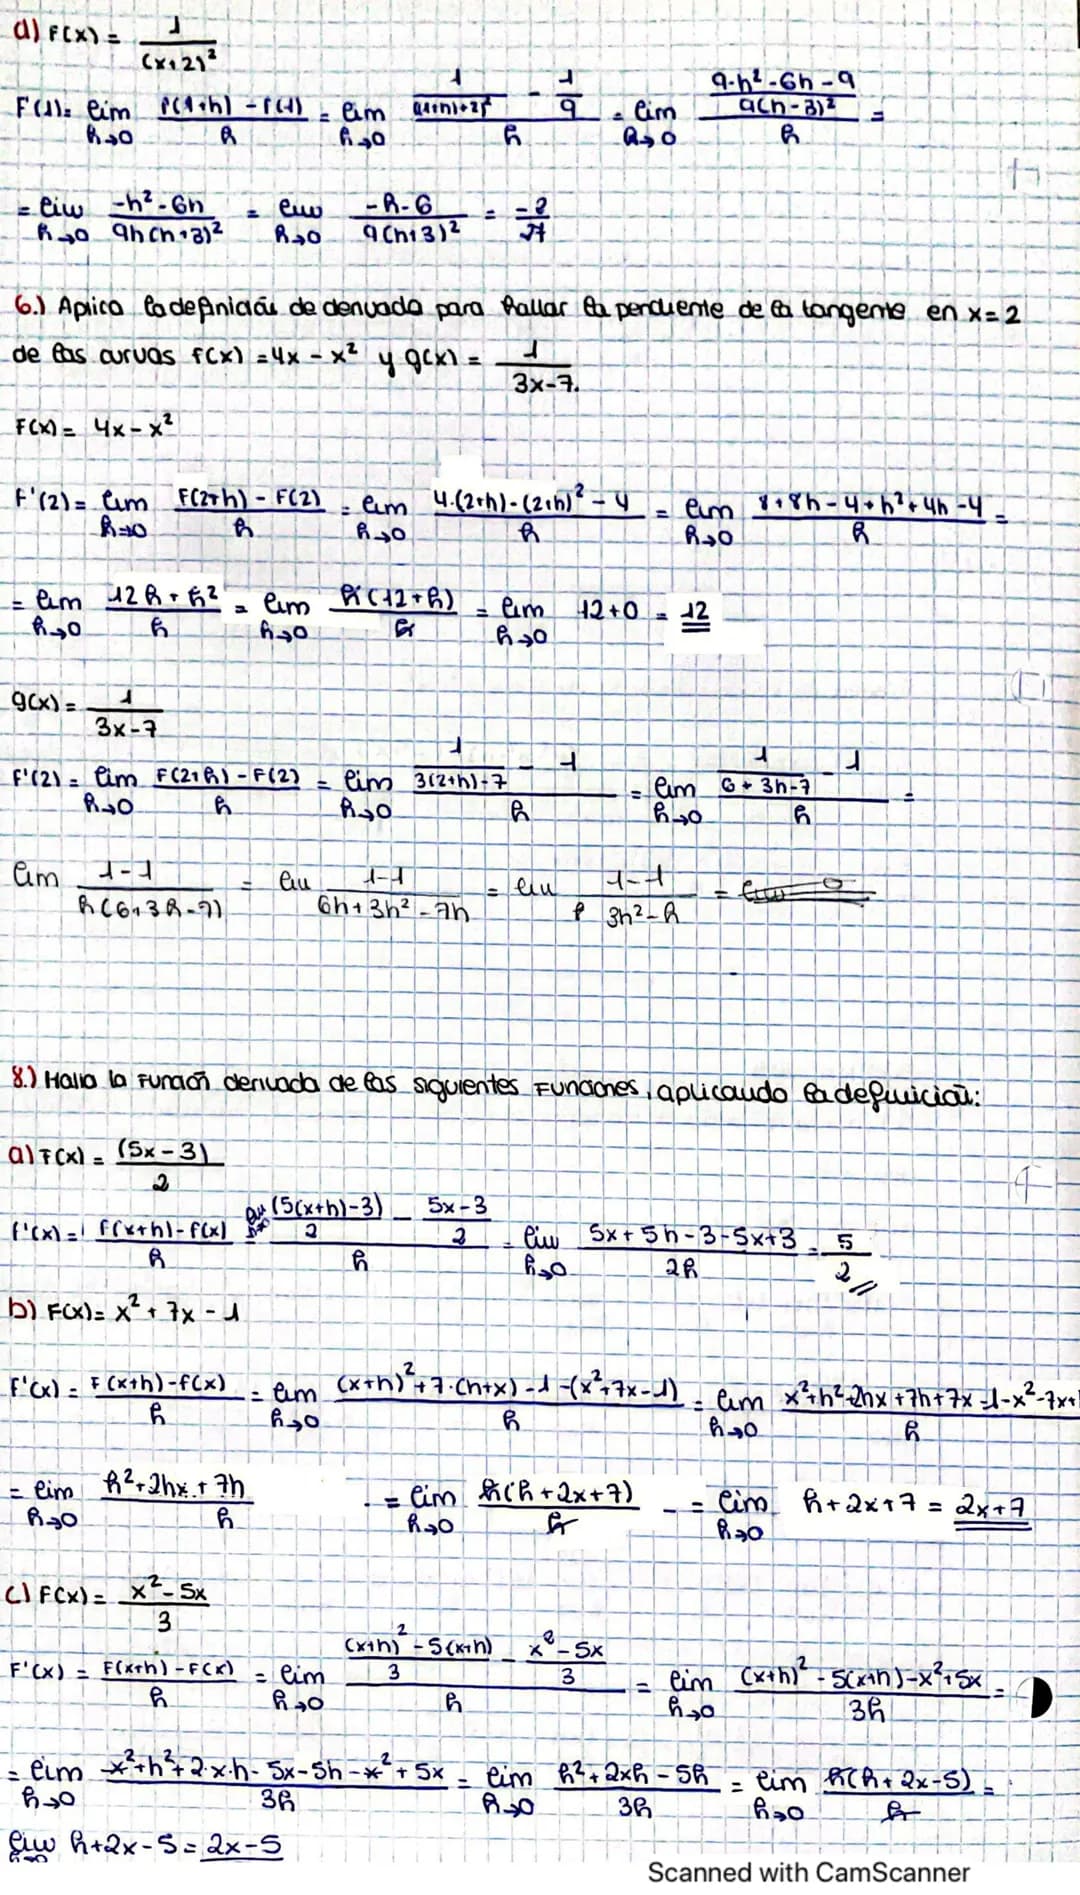 d) F(x) = 1/(x+2)²
F'(1) = lim h→0 f(1+h) - f(1)/h = lim h→0 1/((1+h)+2)² - 1/9 /h = lim h→0 9-h²-6h-9/9(h-3)² /h =
= lim h→0 -h²-6h/9h(h+3)² = lim h→0 -h-6/9(h+3)² = -2/27
6.) Aplica la definición de derivada para hallar la pendiente de la tangente en x=2
de las curvas f(x) = 4x - x² y g(x) = 1/3x-7.
F(x) = 4x - x²
F'(2) = lim h→0 F(2+h) - F(2)/h = lim h→0 4·(2+h)-(2+h)² - 4/h = lim h→0 8+8h-4+h²+4h-4/h =
= lim h→0 12h+h²/h = lim h→0 h(12+h)/h = lim h→0 12+0 = 12
g(x) = 1/3x-7
F'(2) = lim h→0 F(2+h) - F(2)/h = lim h→0 1/3(2+h)-7 - 1 /h = lim h→0 1/6+3h-7 - 1 /h =
lim 1-1/h(6+3h-7) = lim 1-1/6h+3h²-7h = lim 1-1/3h²-h =
8.) Halla la función derivada de las siguientes funciones, aplicando la definición:
a) F(x) = (5x-3)/2
f'(x) = f(x+h)-f(x)/h = lim h→0 (5(x+h)-3)/2 - 5x-3/2 /h = lim h→0 5x+5h-3-5x+3/2h = 5/2
b) F(x) = x² + 7x - 1
F'(x) = F(x+h)-f(x)/h = lim h→0 (x+h)²+7·(h+x)-1-(x²+7x-1)/h = lim h→0 x²+h²+2hx+7h+7x-1-x²-7x+1/h
= lim h→0 h²+2hx+7h/h = lim h→0 h(h+2x+7)/h = lim h→0 h+2x+7 = 2x+7
c) F(x) = x²-5x/3
F'(x) = F(x+h)-F(x)/h = lim h→0 (x+h)²-5(x+h)/3 - x²-5x/3 /h = lim h→0 (x+h)²-5(x+h)-x²+5x/3h =
= lim h→0 x²+h²+2·x·h-5x-5h-x²+5x/3h = lim h→0 h²+2xh-5h/3h = lim h→0 h(h+2x-5)/h =
lim h→0 h+2x-5 = 2x-5
Scanned with CamScanner